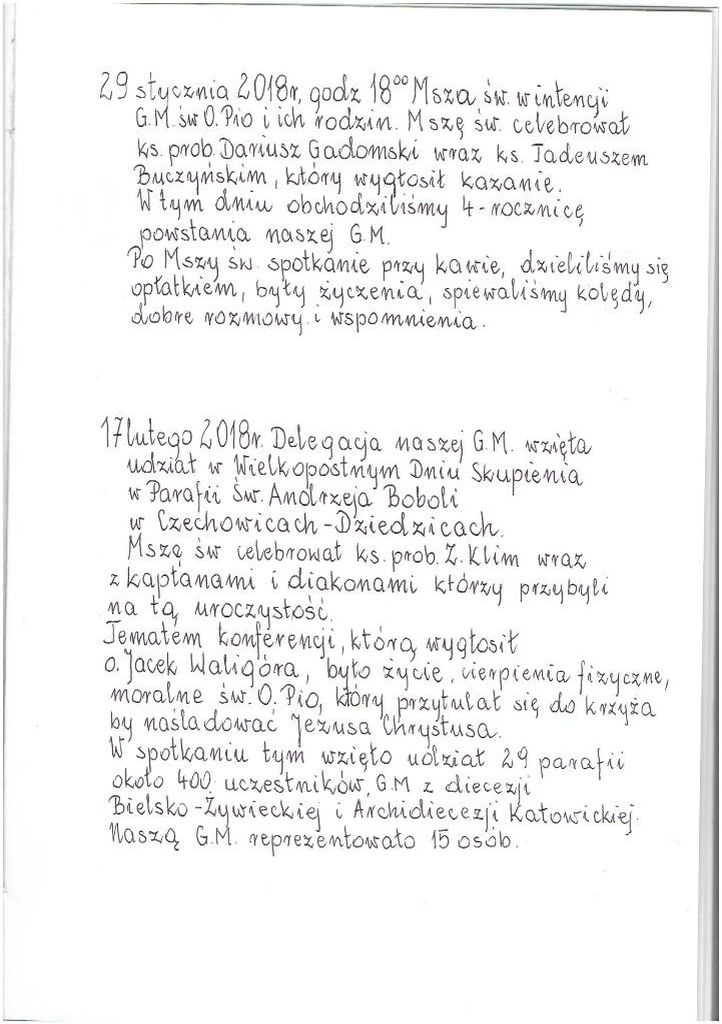 29 stycznia 2018r, godz 18⁰⁰ Msza św. w intencji
G.M. św O. Pio i ich rodzin. Mszę św. celebrował
ks. prob. Dariusz Gadomski wraz ks. Tadeuszem
Buczyńskim, który wygłosił kazanie.
W tym dniu obchodziliśmy 4-rocznicę
powstania naszej G.M.
Po Mszy św. spotkanie przy kawie, dzieliliśmy się
opłatkiem, były życzenia, spiewaliśmy kolędy,
dobre rozmowy i wspomnienia.
17 lutego 2018r. Delegacja naszej G.M. wzięła
udział w Wielkopostnym Dniu Skupienia
w Parafii Św. Andrzeja Boboli
w Czechowicach-Dziedzicach.
Mszę św celebrował ks. prob. Z. Klim wraz
z kapłanami i diakonami którzy przybyli
na tą uroczystość.
Tematem konferencji, którą wygłosił
o. Jacek Waligóra, było życie, cierpienia fizyczne,
moralne św. O. Pio, który przytulał się do krzyża
by naśladować Jezusa Chrystusa.
W spotkaniu tym wzięło udział 29 parafii
około 400 uczestników, G.M z diecezji
Bielsko-Żywieckiej i Archidiecezji Katowickiej.
Naszą G.M. reprezentowało 15 osób.